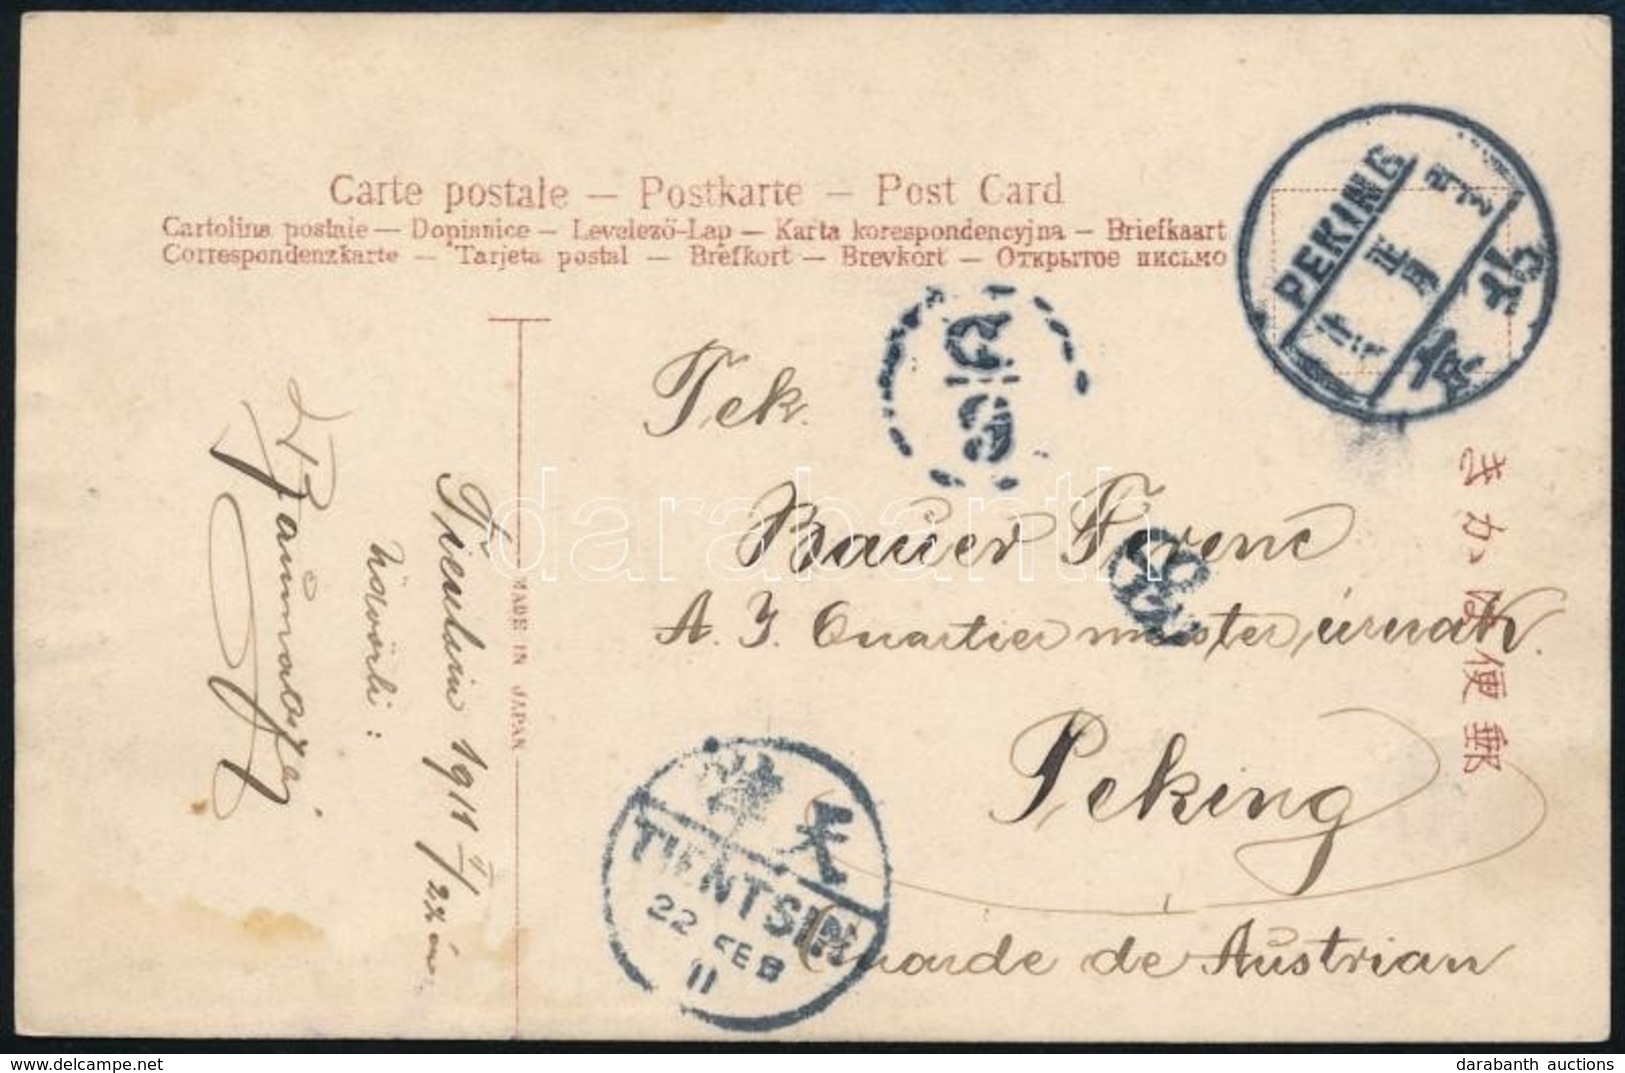 Carte postale — Postkarte — Post Card
Cartolina postale — Dopisnice — Levelező-Lap — Karta korespondencyjna — Briefkaart
Correspondenzkarte — Tarjeta postal — Brefkort — Brevkort — Открытое письмо
PEKING
北京
Tek.
Bauer Ferenc
A. J. Quartiermeister úrnak.
Peking
de Austrian
きかは便郵
MADE IN JAPAN
天津
TIENTSIN
22 FEB
11
Tientsin 1911 II/22 én.
üdvözli:
darabanth
darabanth auctions
delcampe.net